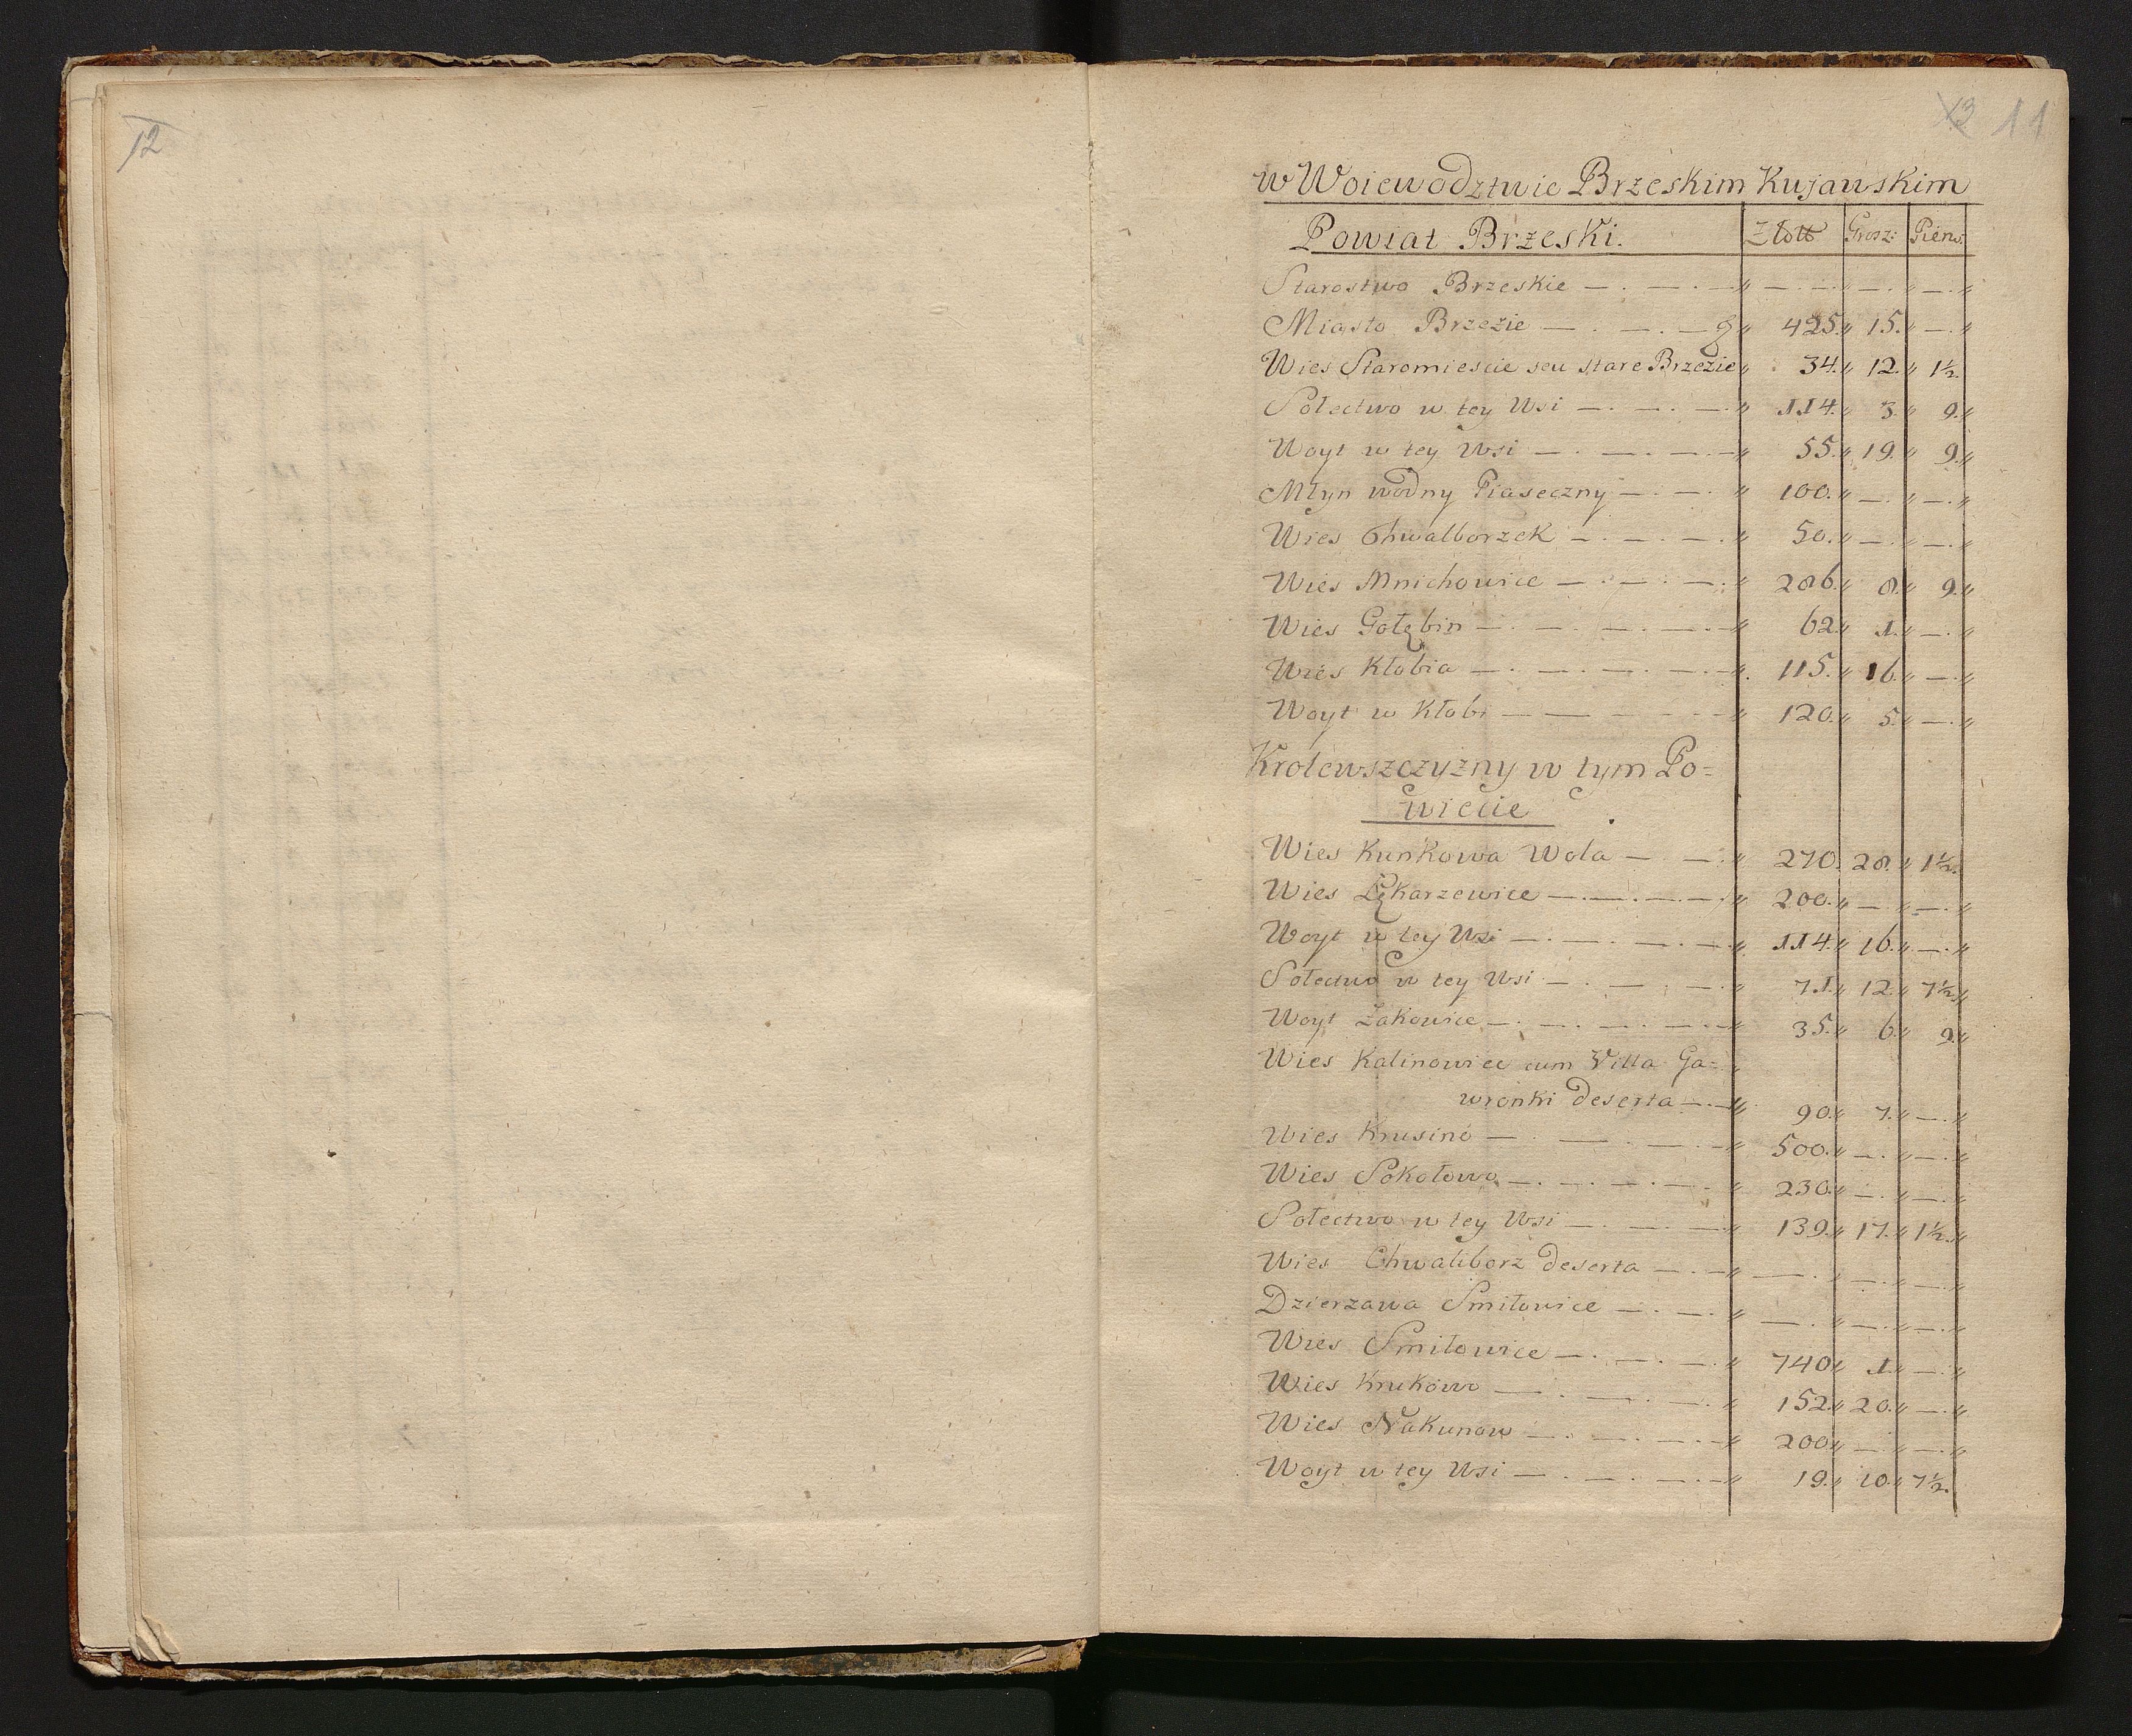 12
13 11
w Woiewodztwie Brzeskim Kujawskim
Powiat Brzeski. Złott Grosz: Pienı:
Starostwo Brzeskie — . — . — „ — . — „ — . „ — . „
Miasto Brzezie — . — . — „ 425. „ 15. „ — . „
Wies Staromiescie seu stare Brzezie „ 34. „ 12. „ 1½.
Sołectwo w tey Wsi — . — . — „ 114. „ 3. „ 9. „
Woyt w tey Wsi — . — . — „ 55. „ 19. „ 9. „
Młyn wodny Piaseczny — . — . „ 100. „ — . „ — . „
Wies Chwalborzek — . — . — . „ 50. „ — . „ — . „
Wies Mnichowice — . — . — . „ 286. „ 8. „ 9. „
Wies Gołębin — . — . — . — „ 62. „ 1. „ — . „
Wies Kłobia — . — . — . — „ 115. „ 16. „ — . „
Woyt w Kłobi — — — „ 120. „ 5. „ — . „
Krolewszczyzny w tym Po=
wiecie
Wies Kunkowa Wola — . — . „ 270. 28. „ 1½.
Wies Łękarzewice — . — . — . — „ 200. „ — . „ — . „
Woyt w tey Wsi — . — . — . — „ 114. „ 16. „ — . „
Sołectwo w tey Wsi — . — . — . „ 71. „ 12. „ 7½. „
Woyt Żakowice — . — . — . — „ 35. „ 6. „ 9. „
Wies Kalinowiec cum Villa Ga=
wronki deserta — . — „ 90. „ 7. „ — . „
Wies Krusino — . — . — . — „ 500. „ — . „ — . „
Wies Sokołowo — . — . — . — . „ 230. „ — . „ — . „
Sołectwo w tey Wsi — . — . — „ 139. „ 17. „ 1½. „
Wies Chwaliborz deserta — . — „ — . „ — . „ — . „
Dzierzawa Smiłowice — . — . „ — . „ — . „ — . „
Wies Smiłowice — . — . — . „ 740 „ 1. „ — . „
Wies Krukowo — . — . — . „ 152. „ 20. „ — . „
Wies Nakunow — . — . — . — „ 200 „ — . „ — . „
Woyt w tey Wsi — . — . — . — „ 19. „ 10. „ 7½.